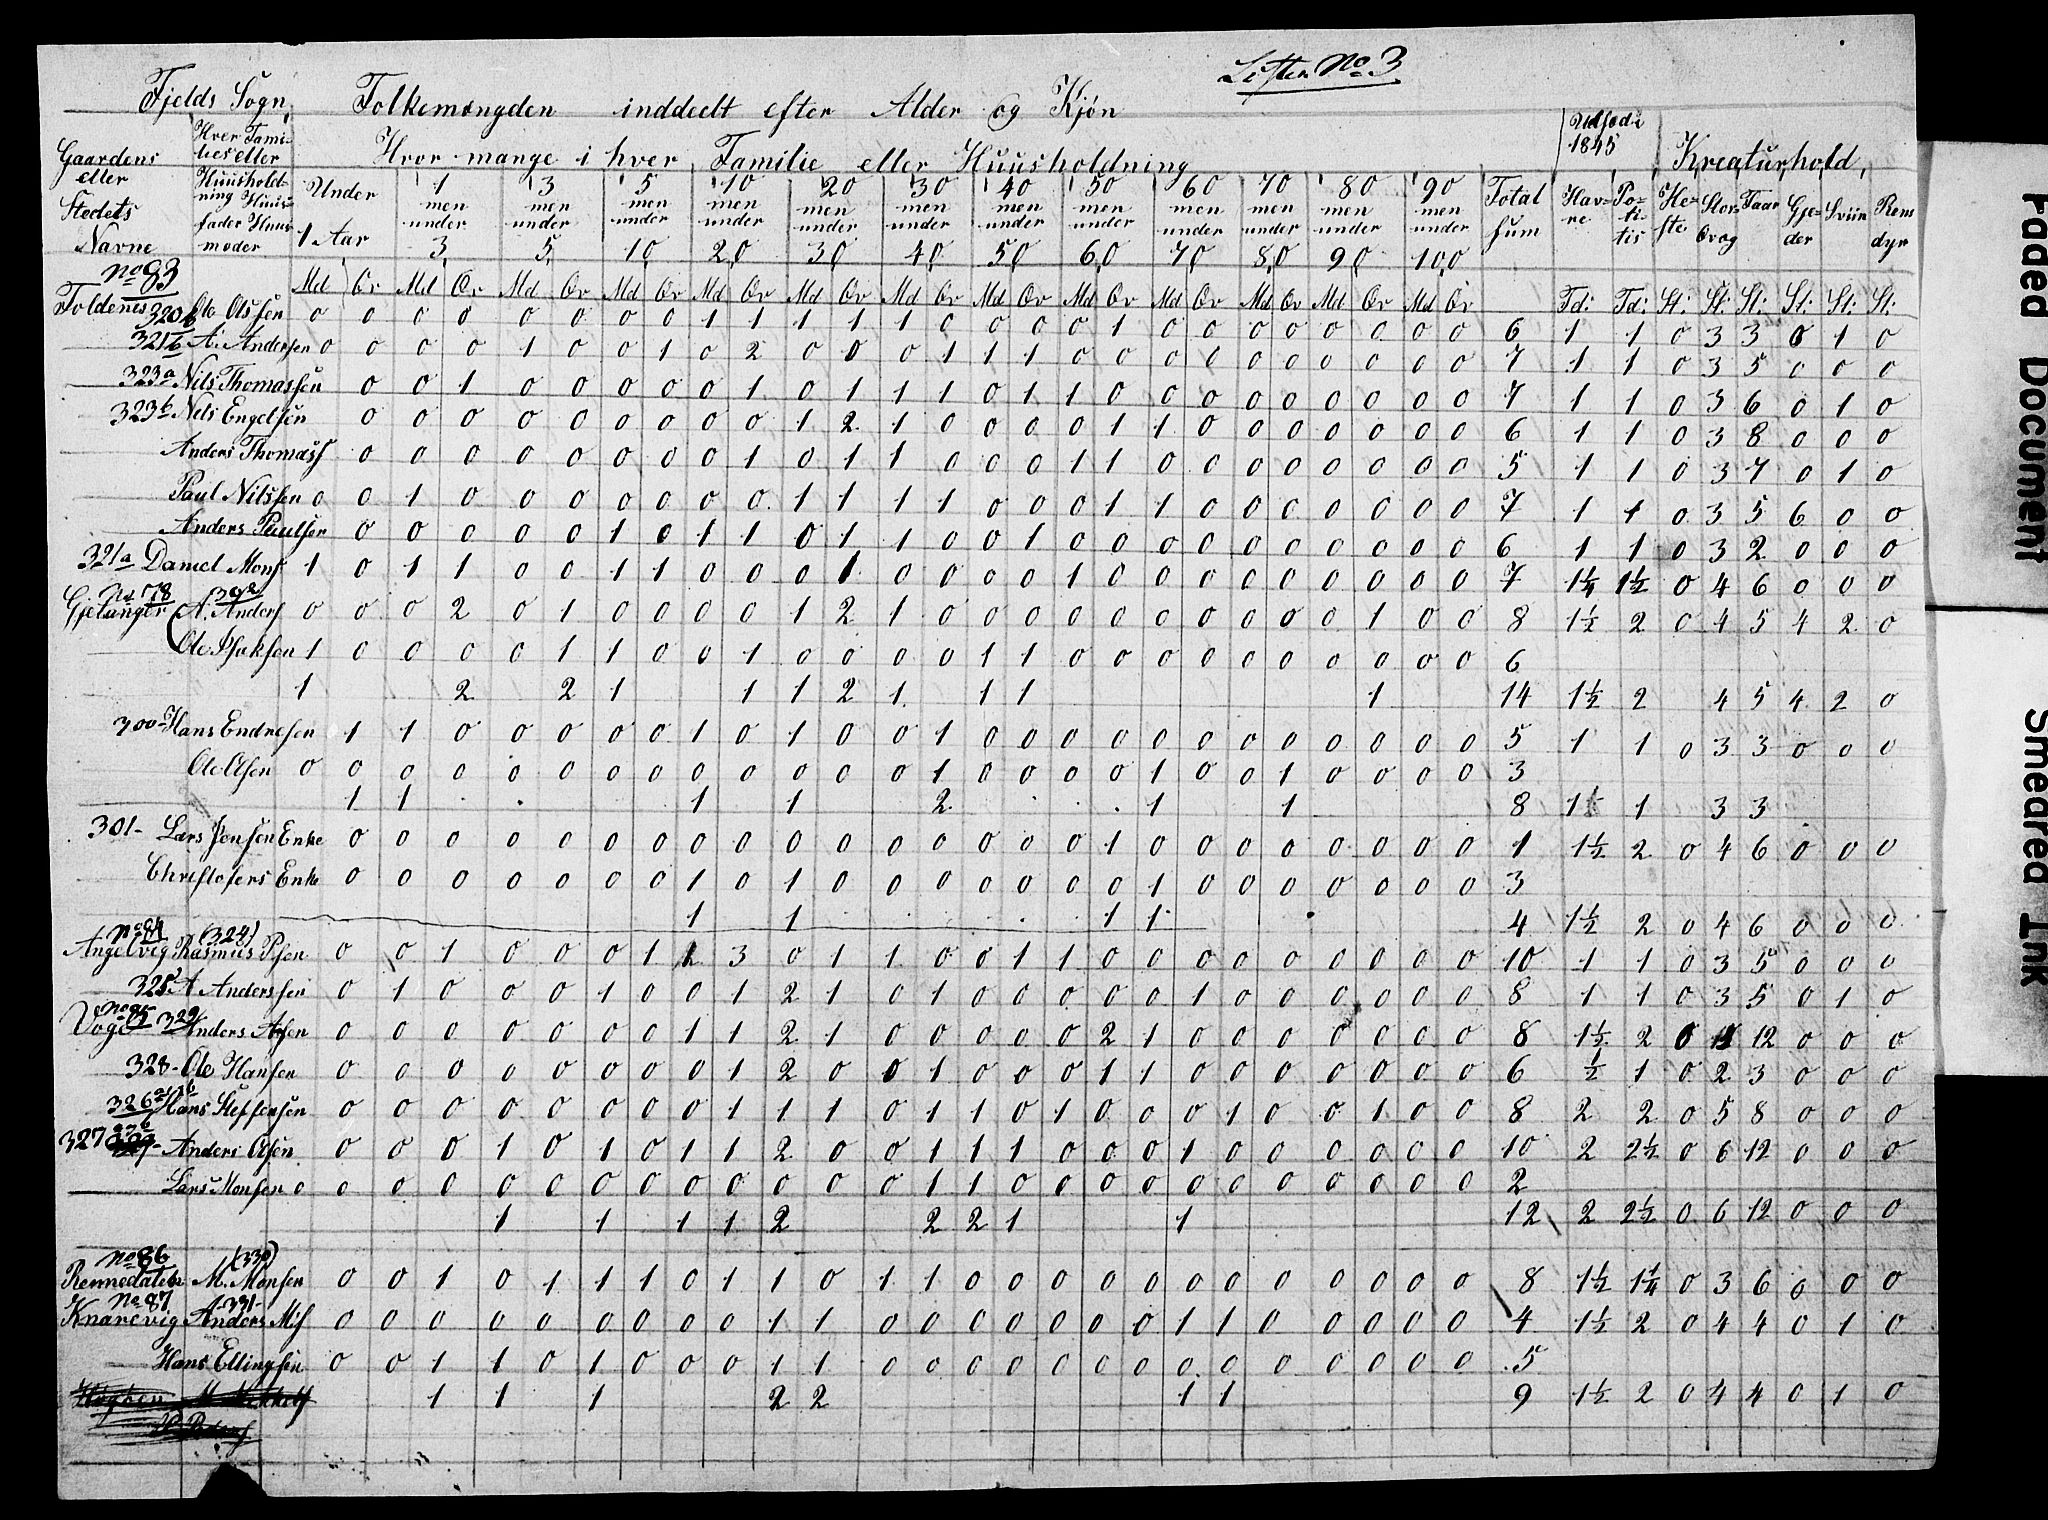 Listen No 3
Fjelds Sogn Folkemængden inddeelt efter Alder og Kjøn
Gaardens eller Stedets Navne
Hver Fami- lies eller Huushold- ning Huus- fader Huus moder
Hvor mange i hver Familie eller Huusholdning
Udsæd i 1845
Kreaturhold
Under 1 Aar | 1 men under 3 | 3 men under 5 | 5 men under 10 | 10 men under 20 | 20 men under 30 | 30 men under 40 | 40 men under 50 | 50 men under 60 | 60 men under 70 | 70 men under 80 | 80 men under 90 | 90 men under 100 | Total sum | Hav- re | Po- te- tis | He- ste | Stor- qvæg | Faar | Gje- der | Sviin | Rens dyr
Md Qv Md Qv Md Qv Md Qv Md Qv Md Qv Md Qv Md Qv Md Qv Md Qv Md Qv Md Qv Md Qv Td: Td: St: St: St: St: St: St:
No 83
Foldenes 320b Ole Olssen 0 0 0 0 0 0 0 0 1 1 1 1 1 0 0 0 0 1 0 0 0 0 0 0 0 0 6 1 1 0 3 3 0 1 0
321b A. Andersen 0 0 0 0 1 0 0 1 0 2 0 0 0 1 1 1 0 0 0 0 0 0 0 0 0 0 7 1 1 0 3 5 0 0 0
323a Nils Thomassen 0 0 1 0 0 0 0 0 1 0 1 1 1 0 1 1 0 0 0 0 0 0 0 0 0 7 1 1 0 3 6 0 1 0
323b Nels Engelsen 0 0 0 0 0 0 0 0 0 1 2 1 0 0 0 0 1 1 0 0 0 0 0 0 0 6 1 1 0 3 8 0 0 0
Anders Thomass 0 0 0 0 0 0 0 0 1 0 1 1 0 0 0 1 1 0 0 0 0 0 0 0 0 5 1 1 0 3 7 0 1 0
Paul Nilssen 0 0 1 0 0 0 0 0 0 0 1 1 1 1 0 0 0 1 1 0 0 0 0 0 0 0 7 1 1 0 3 5 6 0 0
Anders Paulsen 0 0 0 0 0 1 0 1 1 0 1 1 0 0 1 0 0 0 0 0 0 0 0 0 0 6 1 1 0 3 2 0 0 0
321a Daniel Mons 1 0 1 1 0 0 1 1 0 0 0 1 0 0 0 0 1 0 0 0 0 0 0 0 0 0 7 1¼ 1½ 0 4 6 0 0 0
No 78
Gjelanger A. Anders 0 0 0 2 0 1 0 0 0 0 1 2 1 0 0 0 0 0 0 0 0 0 0 1 0 0 8 1½ 2 0 4 5 4 2 0
Ole 1 0 0 0 0 1 1 0 0 1 0 0 0 0 1 1 0 0 0 0 0 0 0 0 0 0 6
1 2 2 1 1 1 2 1 1 1 1 14 1½ 2 4 5 4 2 0
300 Hans Endresen 1 1 0 0 0 0 0 1 0 1 0 0 1 0 0 0 0 0 0 0 0 0 0 0 0 5 1 1 0 3 3 0 0 0
Ole Olsen 0 0 0 0 0 0 0 0 0 0 0 0 0 1 0 0 0 0 1 0 0 1 0 0 0 0 3
1 1 1 1 2 1 1 8 1½ 1 3 3
301- Lars Jensen Enke 0 0 0 0 0 0 0 0 0 0 0 0 0 0 0 0 1 0 0 0 0 0 0 0 0 1 1½ 2 0 4 6 0 0 0
Christofers Enke 0 0 0 0 0 0 0 1 0 1 0 0 0 0 0 0 0 1 0 0 0 0 0 0 0 3
1 1 1 1 4 1½ 2 0 4 6 0 0 0
No 84 (324)
Angelvig Rasmus 0 0 1 0 0 0 1 2 3 0 1 1 0 0 1 1 0 0 0 0 0 0 0 0 0 10 1 1 0 3 5 0 0 0
325 A Anderssen 0 1 0 0 0 1 0 0 1 2 1 0 1 0 0 0 0 0 1 0 0 0 0 0 0 8 1 1 0 3 5 0 1 0
No 85
329 Anders 0 0 0 0 0 0 0 1 1 2 1 0 0 0 0 0 2 1 0 0 0 0 0 0 0 8 1½ 2 0 12 0 0 0
328- Ole Hansen 0 0 0 0 0 0 0 0 1 2 0 0 1 0 0 0 1 1 0 0 0 0 0 0 0 6 ½ 1 0 2 3 0 0 0
326 Hans Steffensen 0 0 0 0 0 0 0 0 1 1 1 0 1 1 0 1 0 0 0 1 0 0 1 0 0 8 2 2 0 5 8 0 0 0
327 Anders Olsen 0 0 0 1 0 1 0 1 1 2 0 0 1 1 1 0 0 0 1 0 0 0 0 0 0 10 2 2½ 0 6 12 0 0 0
Lars Monsen 0 0 0 0 0 0 0 0 0 0 0 0 0 1 1 0 0 0 0 0 0 0 0 0 0 0 2
1 1 1 1 2 2 2 1 1 12 2 2½ 0 6 12 0 0 0
No 86 (330)
Rennedalen M. Monsen 0 0 1 0 1 1 1 0 1 1 0 1 1 0 0 0 0 0 0 0 0 0 0 0 0 8 1½ 1¼ 0 3 6 0 0 0
No 87 -331-
Knarrevig Anders 0 0 0 0 0 0 0 0 0 1 1 0 0 0 0 0 0 0 1 1 0 0 0 0 0 4 1½ 2 0 4 4 0 1 0
Hans Ellingsen 0 0 1 1 0 1 0 0 0 1 1 0 0 0 0 0 0 0 0 0 0 0 0 0 0 5
1 1 1 2 2 1 1 9 1½ 2 0 4 4 0 1 0
Faded Document
Smeared Ink